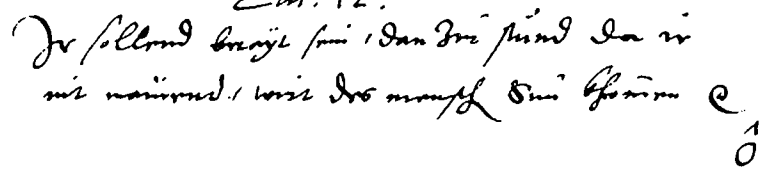 Ir sollend berayt sein, dan Zu stund da ir
nit mainend, wirt des mensch Sun khomen